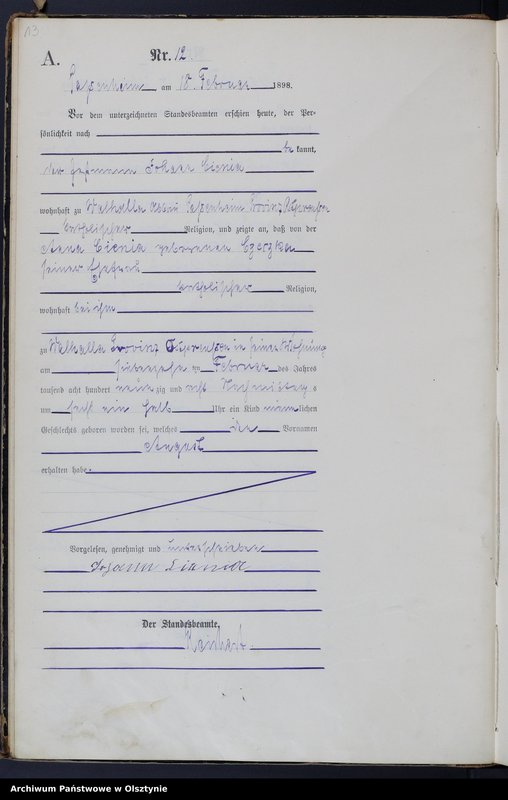 13
A.
Nr. 12
Papenheim am 18 Februar 1898.
Vor dem unterzeichneten Standesbeamten erschien heute, der Per-
sönlichkeit nach
be kannt,
der Johann Cicnia
wohnhaft zu Walhalla Papenheim Provinz Ostpreußen
katholischer Religion, und zeigte an, daß von der
Anna Cicnia geborenen
seiner Ehefrau
katholischer Religion,
wohnhaft bei ihm
zu Walhalla Provinz Ostpreußen in seiner Wohnung
am siebzehn ten Februar des Jahres
tausend acht hundert neun zig und acht Nachmittag s
um halb Uhr ein Kind männ lichen
Geschlechts geboren worden sei, welches den Vornamen
August
erhalten habe.
Vorgelesen, genehmigt und unterschrieben
Johann
Der Standesbeamte.
Archiwum Państwowe w Olsztynie